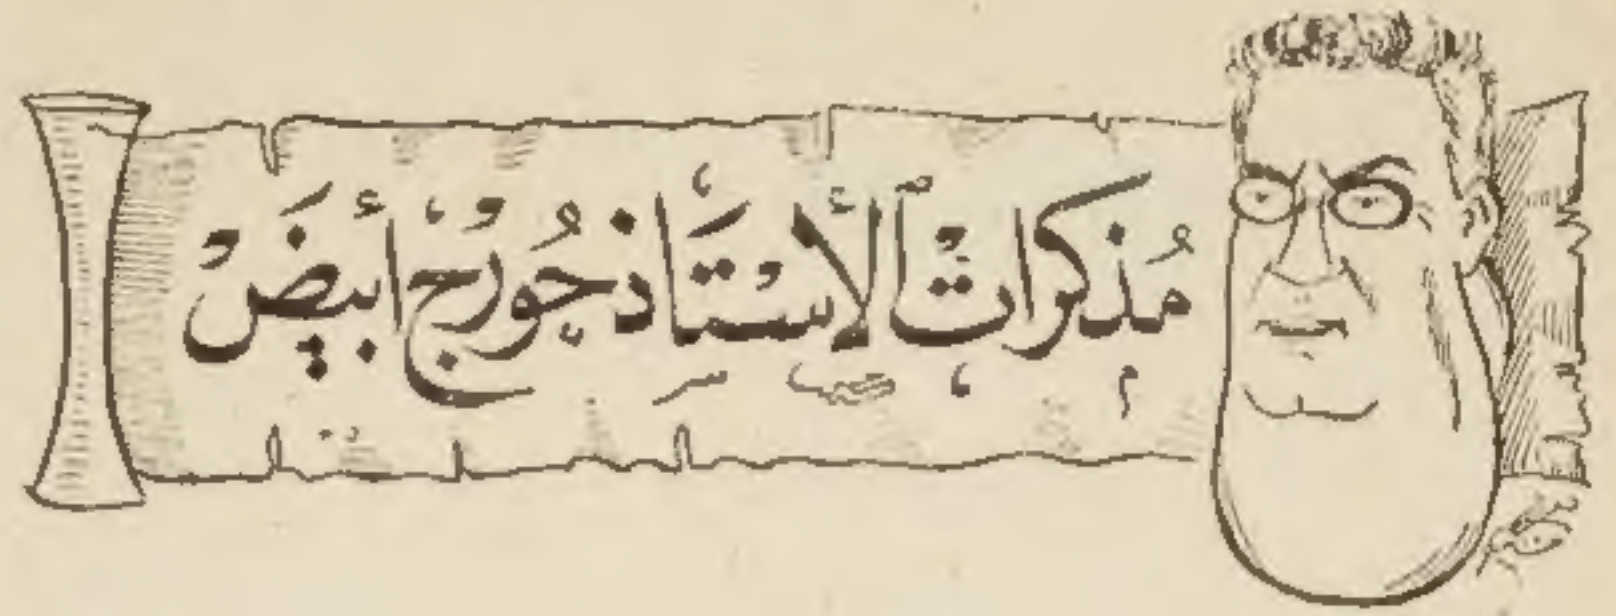 مُذكراتْ الأسْتَاذ جُورْج أبيضَْ